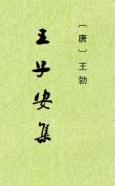 〔唐〕王勃
王子安集